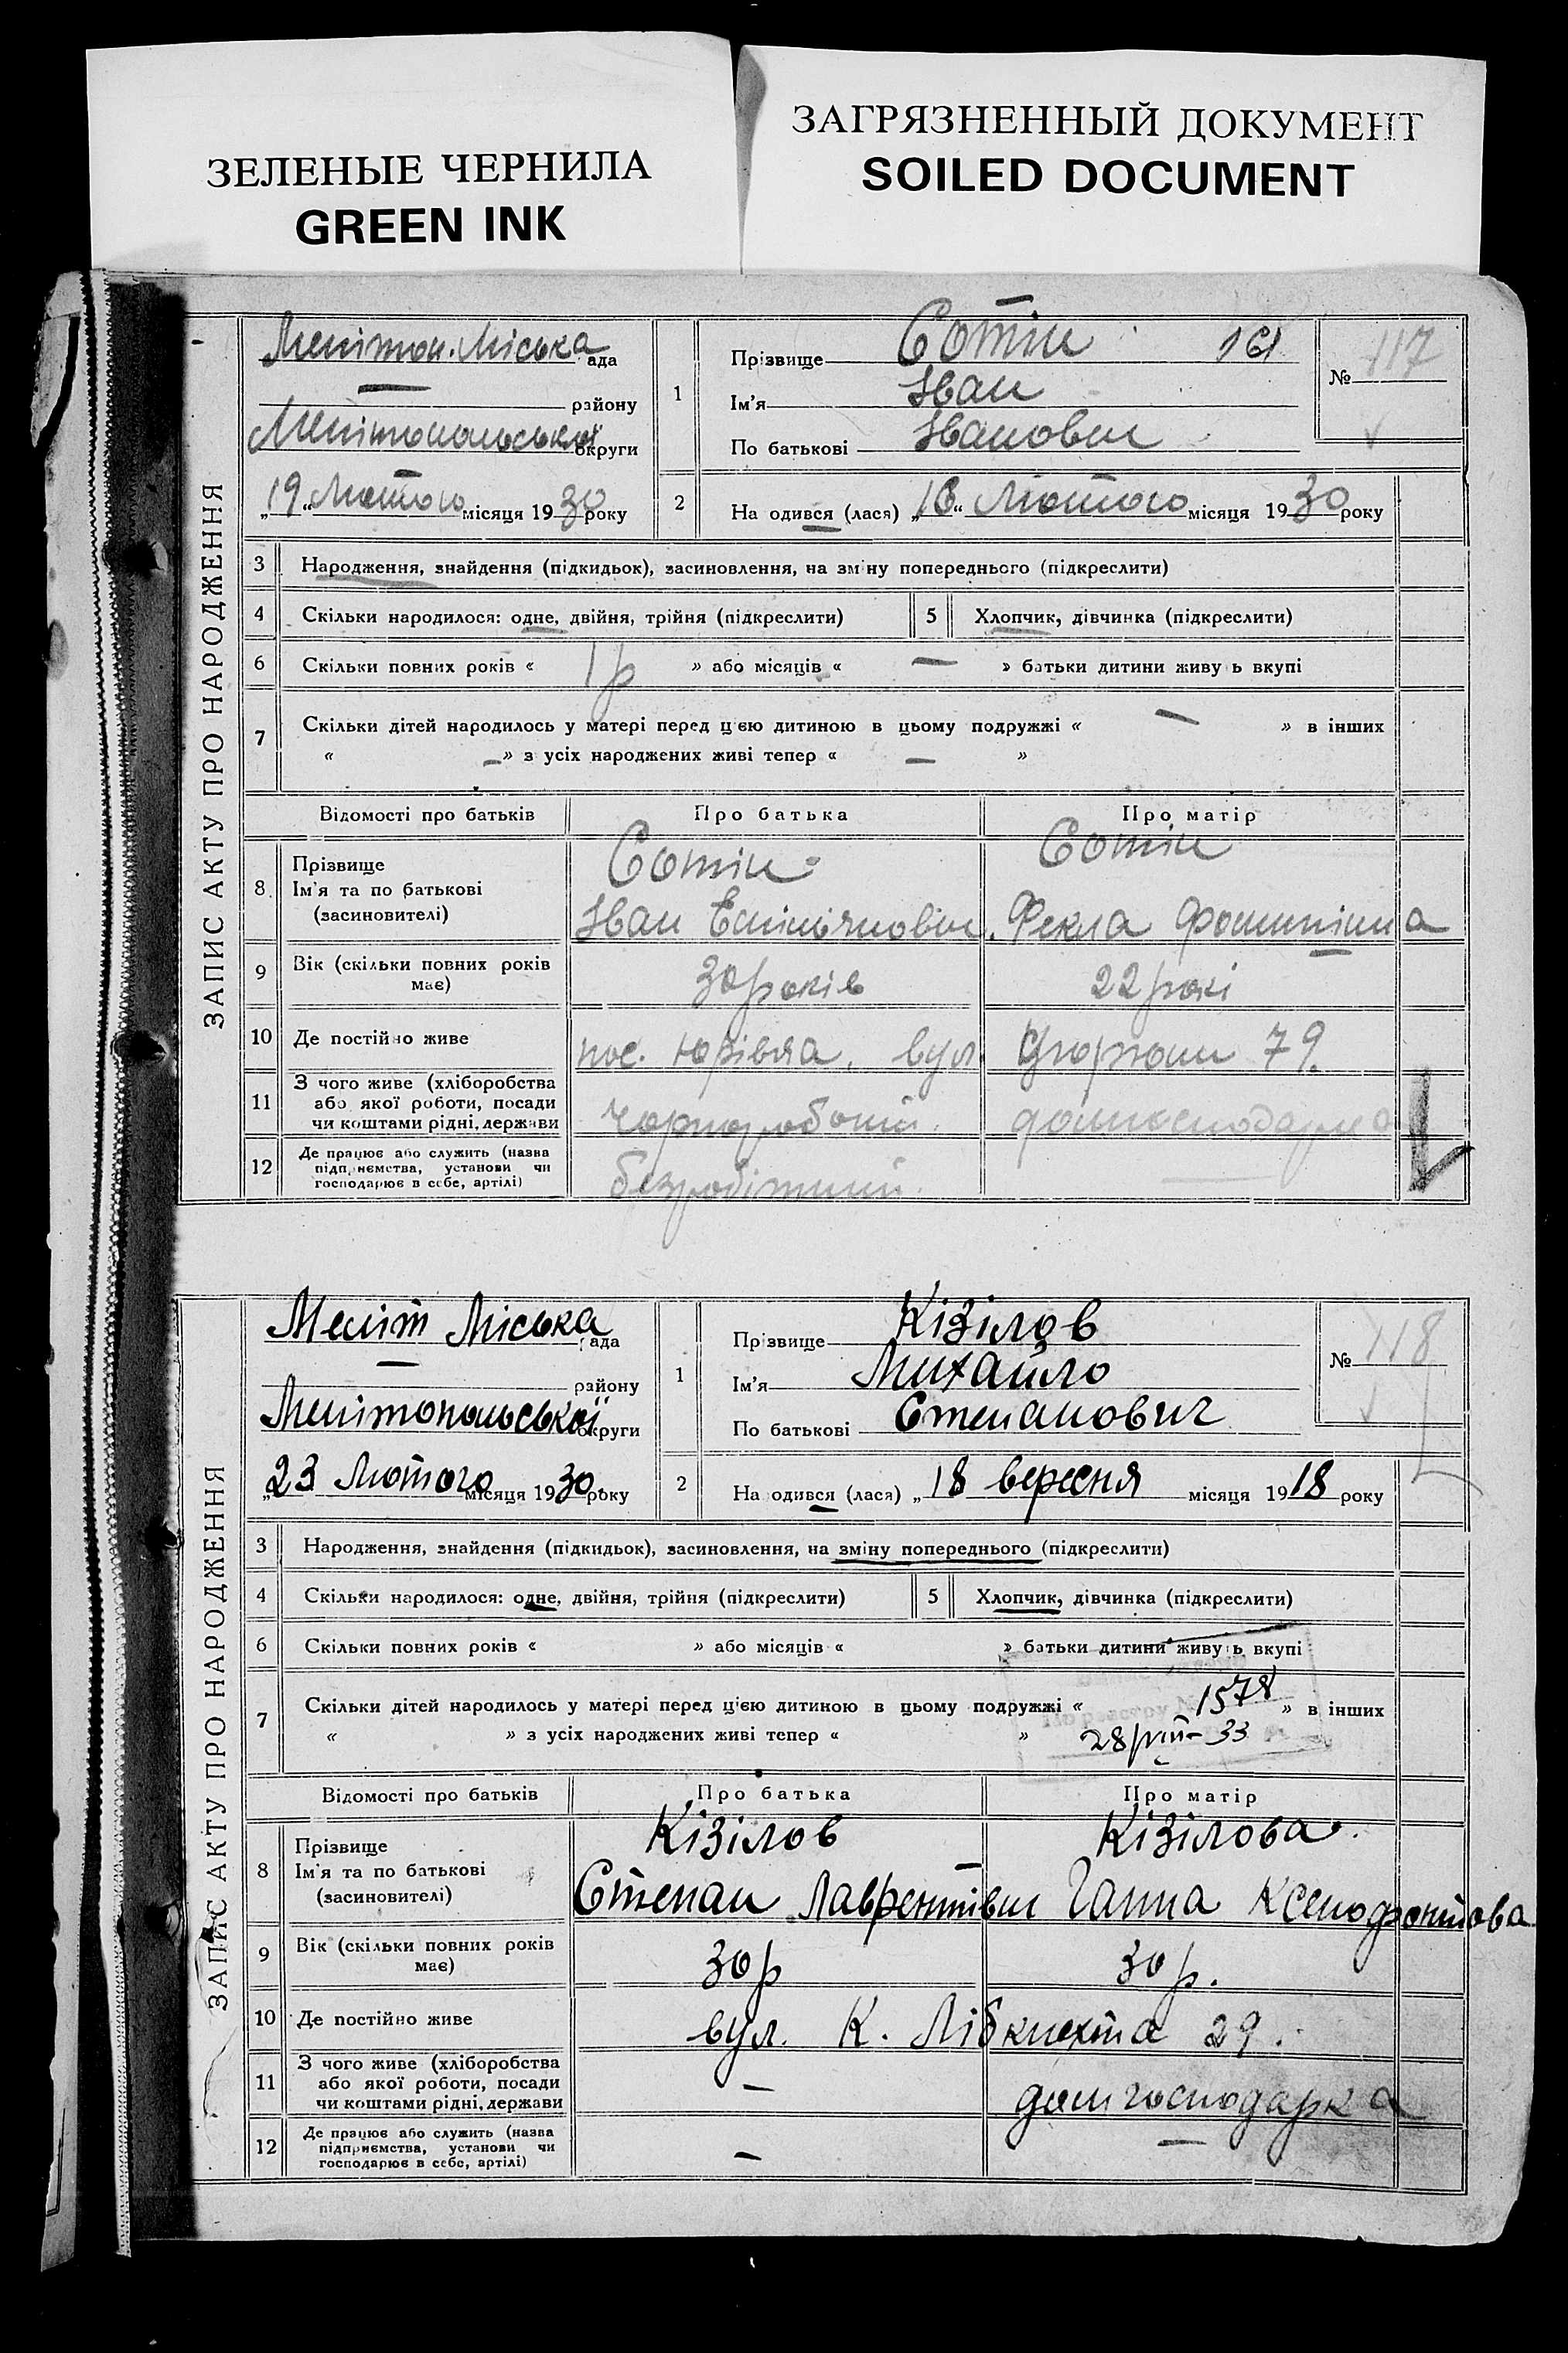 ЗЕЛЕНЫЕ ЧЕРНИЛА
GREEN INK
ЗАГРЯЗНЕННЫЙ ДОКУМЕНТ
SOILED DOCUMENT
ЗАПИС АКТУ ПРО НАРОДЖЕННЯ
Мелітоп. Міська ада
— району
Мелітопольської округи
„19“ Лютого місяця 1930 року
1 Прізвище Сотін 161
Ім'я Іван
По батькові Іванович
№ 117
2 На одився (лася) „16“ Лютого місяця 1930 року
3 Народження, знайдення (підкидьок), засиновлення, на зміну попереднього (підкреслити)
4 Скільки народилося: одне, двійня, трійня (підкреслити) 5 Хлопчик, дівчинка (підкреслити)
6 Скільки повних років « 1 р » або місяців « — » батьки дитини живу ь вкупі
7 Скільки дітей народилось у матері перед цією дитиною в цьому подружжі « — » в інших
« — » з усіх народжених живі тепер « — »
Відомості про батьків Про батька Про матір
8 Прізвище Ім'я та по батькові (засиновителі)
Сотін Сотін
Іван Фекла
9 Вік (скільки повних років має) 30 років 22 рокі
10 Де постійно живе пос. Юрівка, вул. 79.
11 З чого живе (хліборобства або якої роботи, посади чи коштами рідні, держави
чорноробочий. домгосподарка
12 Де працює або служить (назва підприємства, установи чи господарює в себе, артілі)
безробітний. —
ЗАПИС АКТУ ПРО НАРОДЖЕННЯ
Меліт Міська ада
— району
Мелітопольської округи
„23 Лютого місяця 1930 року
1 Прізвище Кізілов
Ім'я Михайло
По батькові Степанович
№ 118
2 На одився (лася) „18 вересня місяця 1918 року
3 Народження, знайдення (підкидьок), засиновлення, на зміну попереднього (підкреслити)
4 Скільки народилося: одне, двійня, трійня (підкреслити) 5 Хлопчик, дівчинка (підкреслити)
6 Скільки повних років « » або місяців « » батьки дитини живу ь вкупі
7 Скільки дітей народилось у матері перед цією дитиною в цьому подружжі « 1578 » в інших
« » з усіх народжених живі тепер « » 28/VIII-33
Відомості про батьків Про батька Про матір
8 Прізвище Ім'я та по батькові (засиновителі)
Кізілов Кізілова.
Степан Лаврентівич Ганна Ксенофонтова
9 Вік (скільки повних років має) 30 р 30 р.
10 Де постійно живе вул. К. Лібкнехта 29.
11 З чого живе (хліборобства або якої роботи, посади чи коштами рідні, держави
— домгосподарка
12 Де працює або служить (назва підприємства, установи чи господарює в себе, артілі)
— —